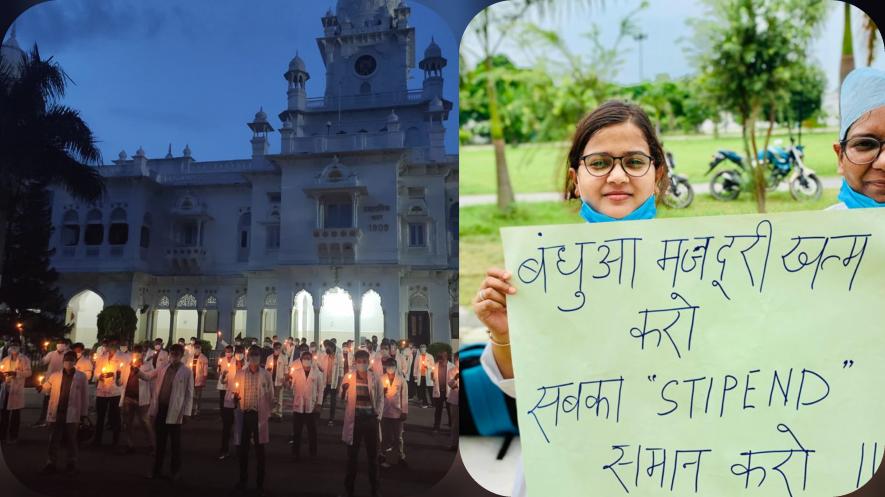 बंधुआ मजदूरी खत्म
करो
सबका "STIPEND"
समान करो ||